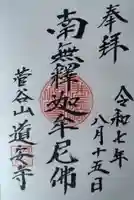 奉拝
令和七年
八月十五日
南無釋迦牟尼佛
菅谷山
道安寺